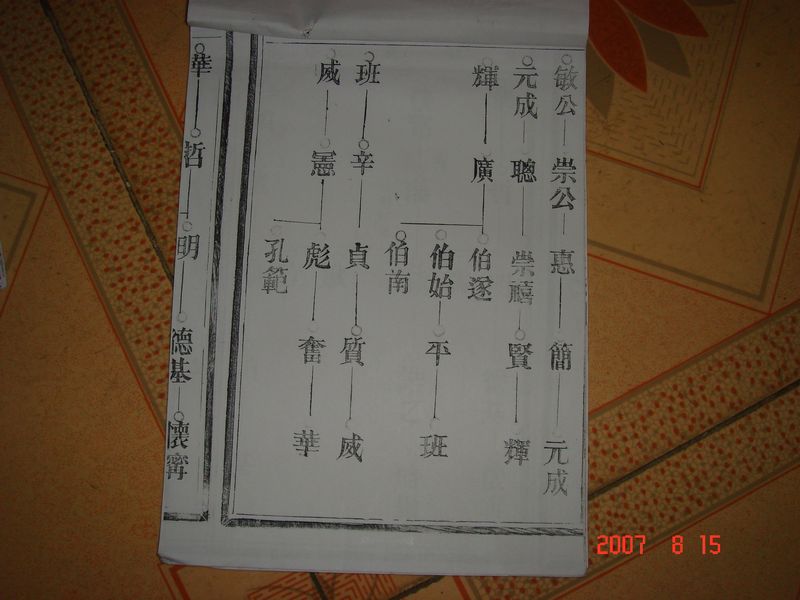 敏公 崇公 惠 簡 元成
元成 聰 崇禧 賢 輝
輝 廣 伯遂
伯始 平 班
伯南
班 辛 貞 質 威
威 憲 彪 奮 華
孔範
華 哲 明 德基 懷甯
2007 8 15